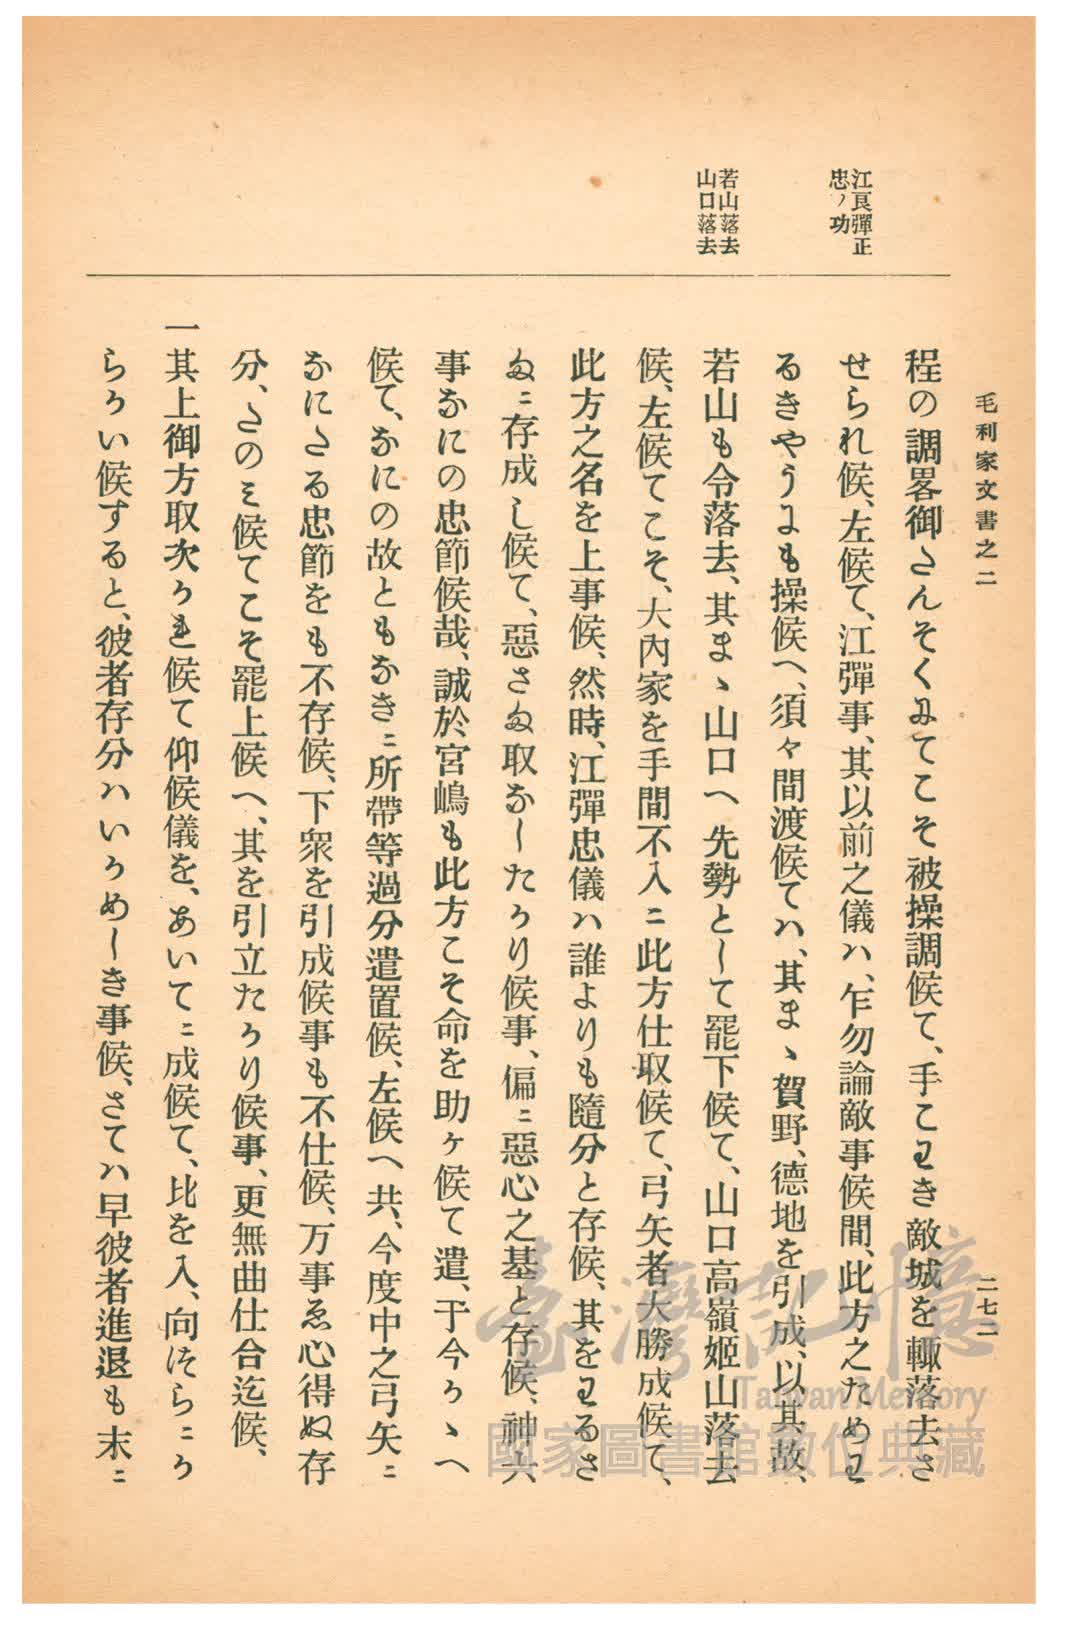 毛利家文書之二
二七二
江良彈正
忠ノ功
若山落去
山口落去
程の調畧御さんそくみてこそ被操調候て、手こわき敵城を輙落去さ
せられ候、左候て、江彈事、其以前之儀ハ、乍勿論敵事候間、此方之ためわ
るきやうよも操候へ、須々間渡候てハ、其まゝ賀野、德地を引成、以其故、
若山も令落去、其まゝ山口へ先勢として罷下候て、山口高嶺姬山落去
候、左候てこそ、大內家を手間不入ニ此方仕取候て、弓矢者大勝成候て、
此方之名を上事候、然時、江彈忠儀ハ誰よりも隨分と存候、其をわるさ
まニ存成し候て、惡さま取なしたかり候事、偏ニ惡心之基と存候、神六
事なにの忠節候哉、誠於宮嶋も此方こそ命を助ケ候て遣、于今かゝへ
候て、なにの故ともなきニ所帶等過分遣置候、左候へ共、今度中之弓矢ニ
なにたる忠節をも不存候、下衆を引成候事も不仕候、万事ゑ心得ぬ存
分、たのミ候てこそ罷上候へ、其を引立たかり候事、更無曲仕合迄候、
一其上御方取次かれ候て仰候儀を、あいてニ成候て、比を入、向はらニか
らかい候すると、彼者存分ハいかめしき事候、さてハ早彼者進退も末ニ
臺灣記憶
Taiwan Memory
國家圖書館數位典藏